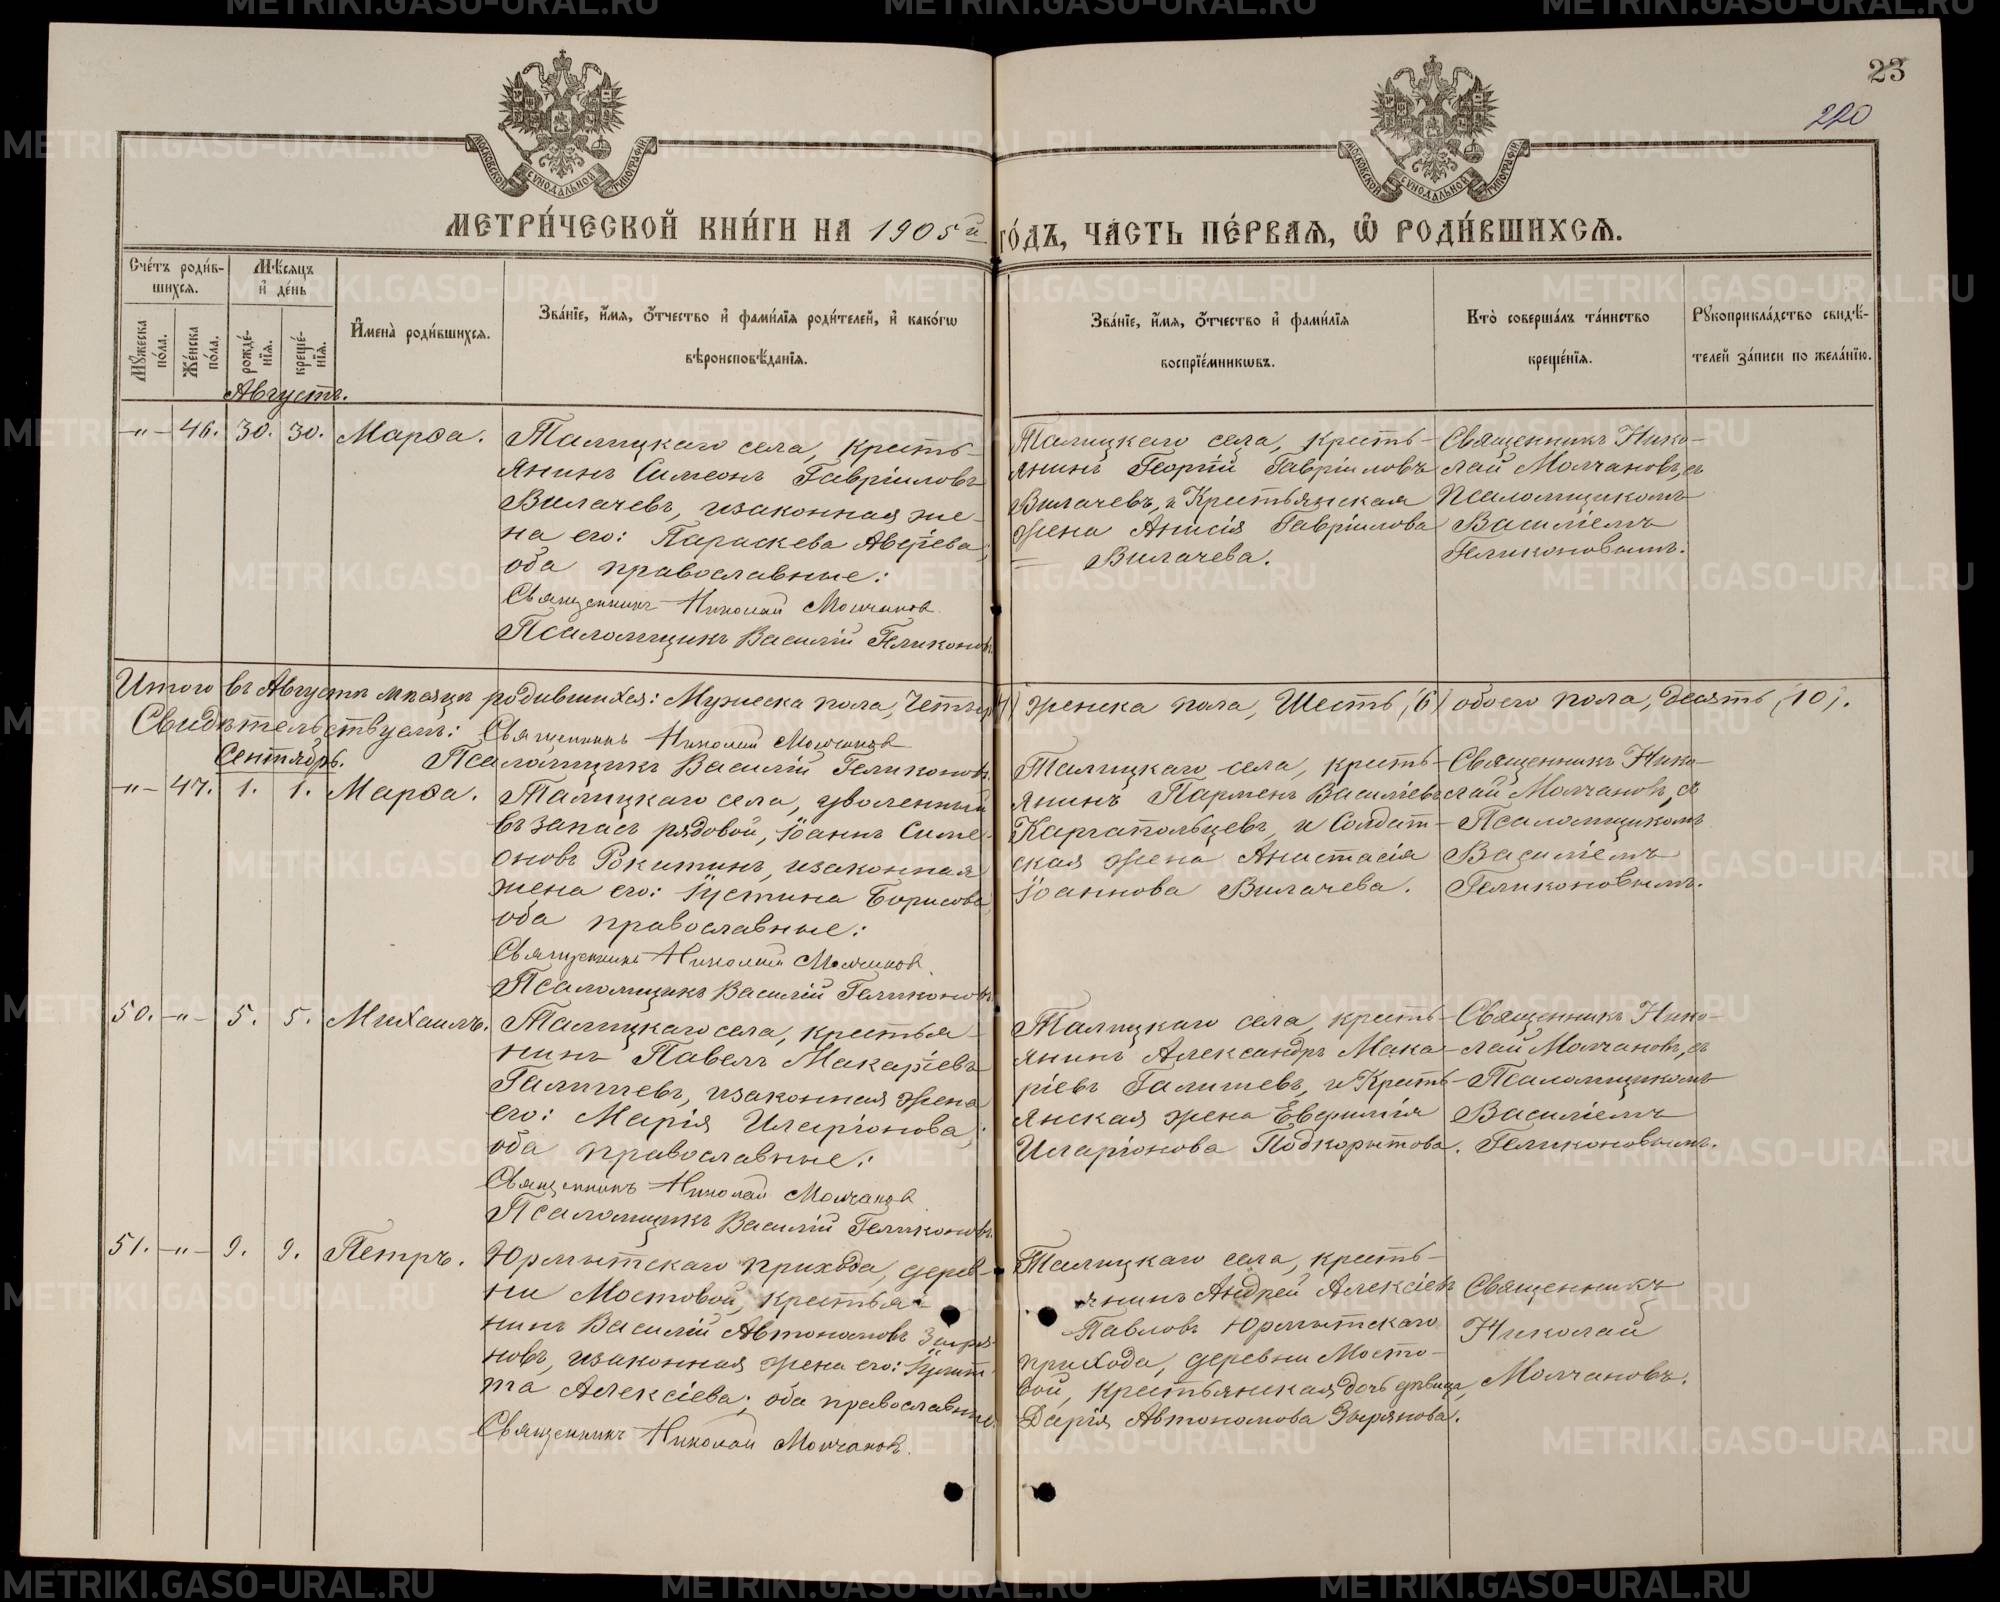 23
220
МОСКОВСКОЙ СУНОДАЛЬНОЙ ТИПОГРАФІИ
МОСКОВСКОЙ СУНОДАЛЬНОЙ ТИПОГРАФІИ
МЕТРИ́ЧЕСКОЙ КНИ́ГИ НА 1905й го́дъ, ЧА́СТЬ ПЕ́РВАѦ, Ѡ҆ РОДИ́ВШИХСѦ.
Сче́тъ роди́в-
шихсѧ.
Мѣ́сѧцъ
и҆ де́нь
Мꙋ́жеска
по́ла.
Же́нска
по́ла.
рожде́-
нїѧ.
креще́-
нїѧ.
И҆мена̀ роди́вшихсѧ.
Зва́нїе, и҆́мѧ, ѻ҆́тчество и҆ фами́лїѧ роди́телей, и҆ како́гѡ
вѣроисповѣ́данїѧ.
Зва́нїе, и҆́мѧ, ѻ҆́тчество и҆ фами́лїѧ
воспрїе́мникѡвъ.
Кто̀ соверша́лъ та́инство
креще́нїѧ.
Рꙋкоприкла́дство свидѣ́-
телей за́писи по жела́нїю.
Августъ.
-„- 46. 30. 30. Марѳа.
Талицкаго села, кресть-
янинъ Симеонъ Гавріиловъ
Вилачевъ, изаконная же-
на его: Параскева Авѣрева;
оба православные:
Священникъ Николай Молчановъ
Псаломщикъ Василій Геликоновъ
Талицкаго села, кресть-
янинъ Георгій Гавріиловъ
Вилачевъ, и Крестьянская
жена Анисія Гавріилова
Вилачева.
Священникъ Нико-
лай Молчановъ, съ
Псаломщикомъ
Василіемъ
Геликоновымъ.
Итого въ Августѣ мѣсяцѣ родившихся: Мужеска пола, Четыре (4) женска пола, Шесть, (6) обоего пола, десять, (10).
Свидѣтельствуемъ: Священникъ Николай Молчановъ
Псаломщикъ Василій Геликоновъ
Сентябрь.
-„- 47. 1. 1. Марѳа.
Талицкаго села, уволенный
въ запасъ рядовой, Іоаннъ Симе-
оновъ Рокитинъ, изаконная
жена его: Іустина Борисова;
оба православные:
Священникъ Николай Молчановъ
Псаломщикъ Василій Геликоновъ
Талицкаго села, кресть-
янинъ Парменъ Василіевъ
Каргапольцевъ, и Солдат-
ская жена Анастасія
Іоаннова Вилачева.
Священникъ Нико-
лай Молчановъ, съ
Псаломщикомъ
Василіемъ
Геликоновымъ.
50. -„- 5. 5. Михаилъ.
Талицкаго села, крестья-
нинъ Павелъ Макаріевъ
Галишевъ, изаконная жена
его: Марія Иларіонова;
оба православные:
Священникъ Николай Молчановъ
Псаломщикъ Василій Геликоновъ
Талицкаго села, кресть-
янинъ Александръ Мака-
ріевъ Галишевъ, и Кресть-
янская жена Евфимія
Иларіонова Подкорытова.
Священникъ Нико-
лай Молчановъ, съ
Псаломщикомъ
Василіемъ
Геликоновымъ.
51. -„- 9. 9. Петръ.
Юрмытскаго прихода, дерев-
ни Мостовой, крестья-
нинъ Василій Автономовъ Зыря-
новъ, изаконная жена его:
Алексіева; оба православные
Священникъ Николай Молчановъ.
Талицкаго села, кресть-
янинъ Андрей Алексіевъ
Павловъ Юрмытскаго
прихода, деревни Мосто-
вой, крестьянская дочь дѣвица,
Дарія Автономова Зырянова.
Священникъ
Николай
Молчановъ.